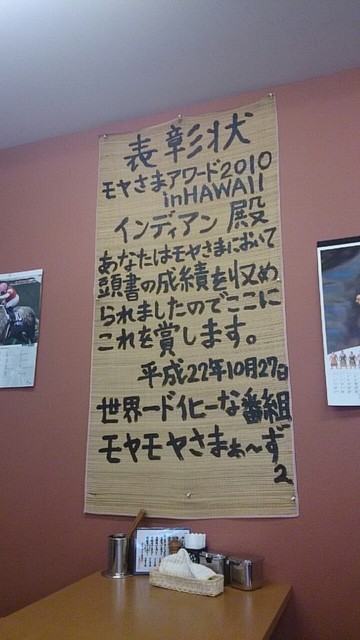 表彰状
モヤさまアワード2010
inHAWAII
インディアン 殿
あなたはモヤさまにおいて
頭書の成績を収め
られましたのでここに
これを賞します。
平成22年10月27日
世界一ドイヒーな番組
モヤモヤさまぁ〜ず
2